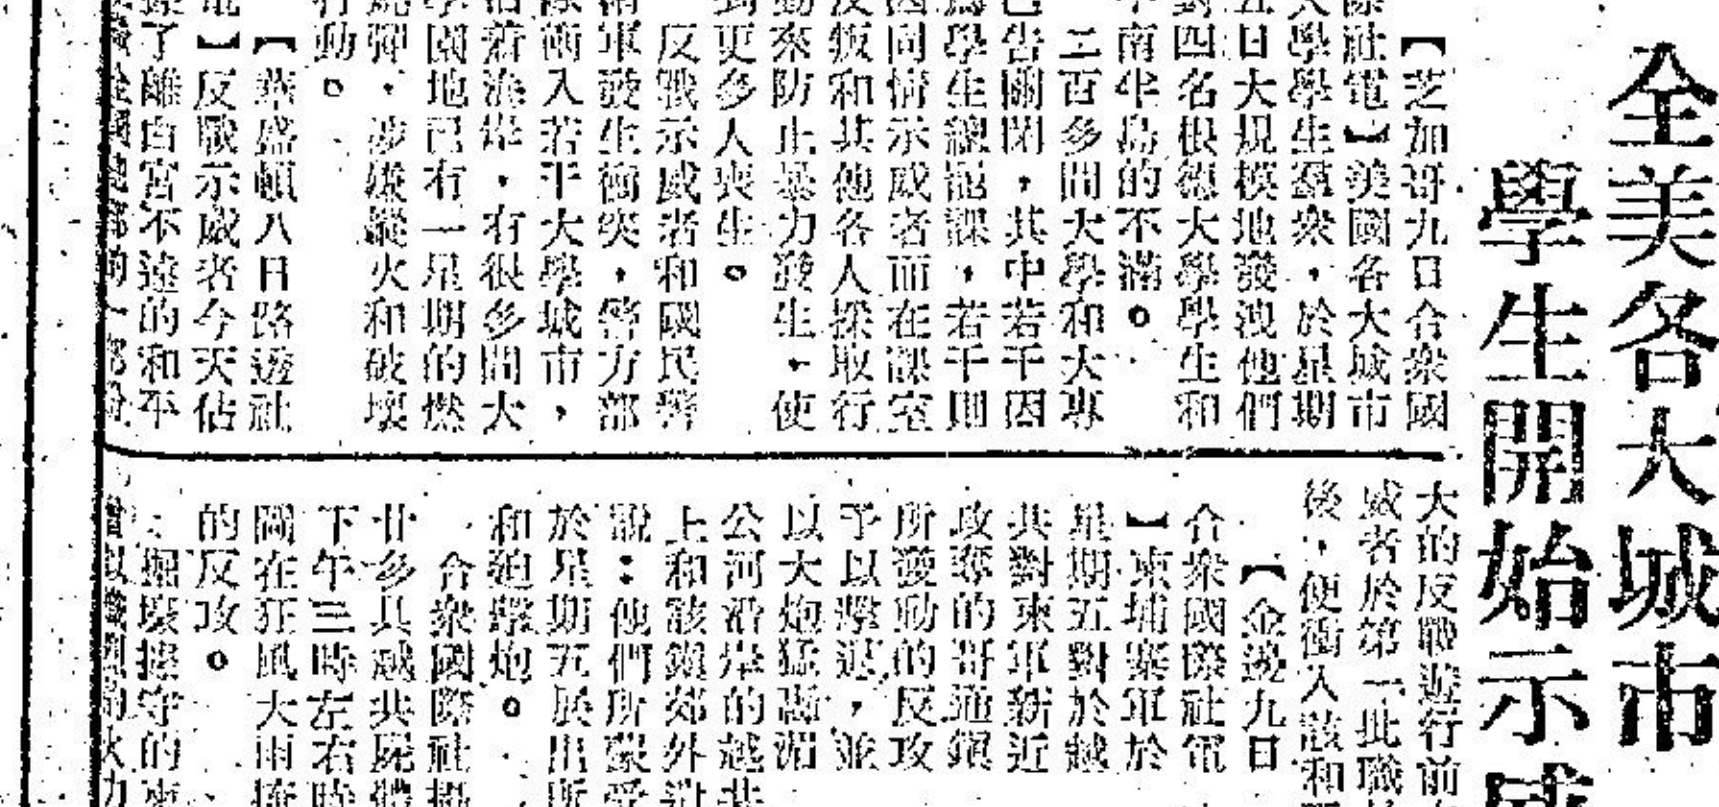 全美各大城市
學生開始示威
【芝加哥九日合衆國
際社電】美國各大城市
大學學生羣衆，於星期
五日大規模地發洩他們
對四名根德大學學生和
中南半島的不滿。
二百多間大學和大專
已告關閉，其中若干因
爲學生總罷課，若干則
因同情示威者而在課室
反叛和其他各人採取行
動來防止暴力發生，使
到更多人喪生。
反戰示威者和國民警
軍發生衝突，警方部
隊衝入若干大學城市，
沿着海岸，有很多間大
學園地已有一星期的燃
燒彈，涉嫌縱火和破壞
行動。
【華盛頓八日路透社
電】反戰示威者今天佔
據了離白宮不遠的和平
大的反戰遊行前
威者於第一批職
後，便衝入該和
【金邊九日
合衆國際社電
】東埔寨軍於
星期五對於越
共對柬軍新近
攻奪的哥通鎮
所發動的反攻
予以擊退，並
以大炮猛轟湄
公河沿岸的越共
上和該鎮郊外
說：他們所蒙受
於星期五辰出所
和迫擊炮。
合衆國際社攝
廿多具越共屍體
下午三時左右時
圖在狂風大雨掩
的反攻。
掘壕據守的柬